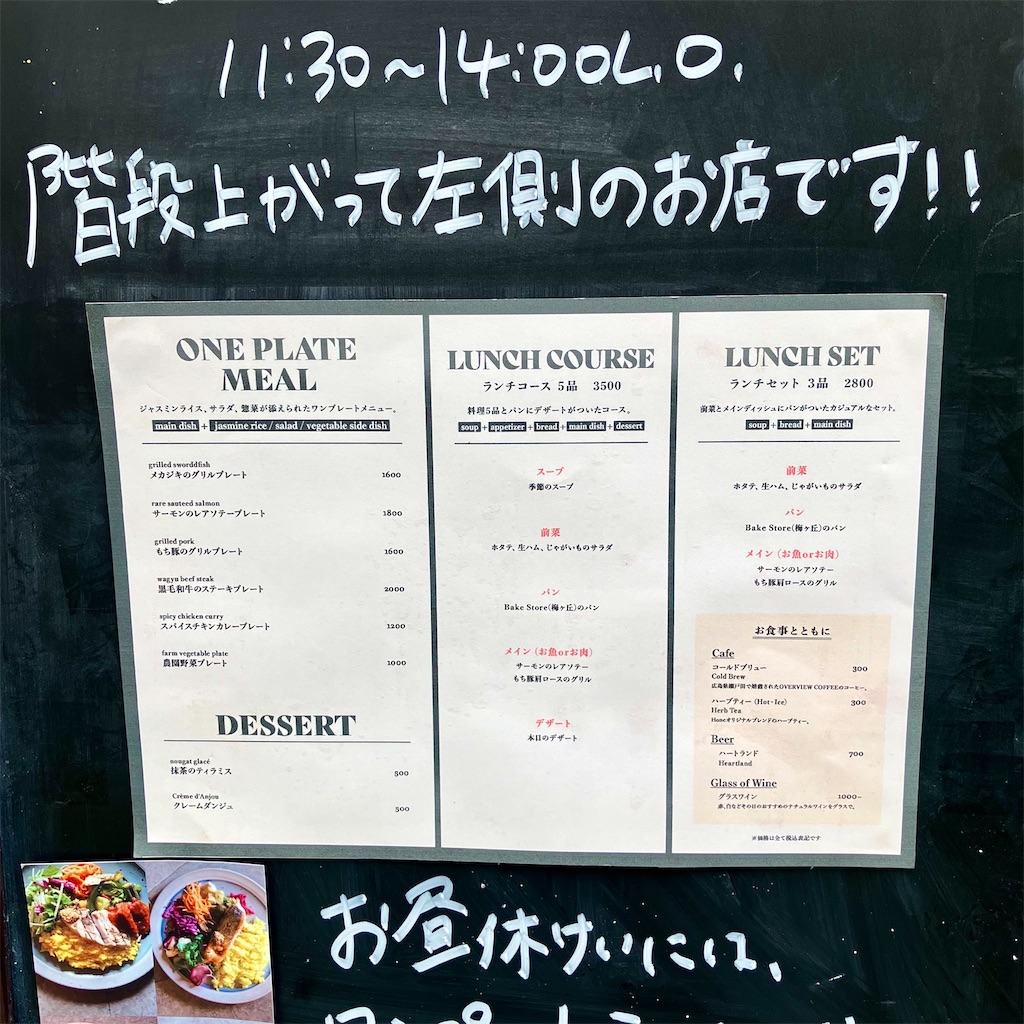 11:30~14:00L.O.
階段上がって左側のお店です!!
ONE PLATE
MEAL
ジャスミンライス、サラダ、惣菜が添えられたワンプレートメニュー。
main dish + jasmine rice / salad / vegetable side dish
grilled sworddfish
メカジキのグリルプレート 1600
rare sauteed salmon
サーモンのレアソテープレート 1800
grilled pork
もち豚のグリルプレート 1600
wagyu beef steak
黒毛和牛のステーキプレート 2000
spicy chicken curry
スパイスチキンカレープレート 1200
farm vegetable plate
農園野菜プレート 1000
DESSERT
nougat glacé
抹茶のティラミス 500
Crème d'Anjou
クレームダンジュ 500
LUNCH COURSE
ランチコース 5品 3500
料理5品とパンにデザートがついたコース。
soup + appetizer + bread + main dish + dessert
スープ
季節のスープ
前菜
ホタテ、生ハム、じゃがいものサラダ
パン
Bake Store(梅ヶ丘)のパン
メイン(お魚orお肉)
サーモンのレアソテー
もち豚肩ロースのグリル
デザート
本日のデザート
LUNCH SET
ランチセット 3品 2800
前菜とメインディッシュにパンがついたカジュアルなセット。
soup + bread + main dish
前菜
ホタテ、生ハム、じゃがいものサラダ
パン
Bake Store(梅ヶ丘)のパン
メイン(お魚orお肉)
サーモンのレアソテー
もち豚肩ロースのグリル
お食事とともに
Cafe
コールドブリュー 300
Cold Brew
広島県瀬戸田で焙煎されたOVERVIEW COFFEEのコーヒー。
ハーブティー (Hot・Ice) 300
Herb Tea
Honeオリジナルブレンドのハーブティー。
Beer
ハートランド 700
Heartland
Glass of Wine
グラスワイン 1000~
赤、白などその日のおすすめのナチュラルワインをグラスで。
※価格は全て税込表記です
お昼休けいには、